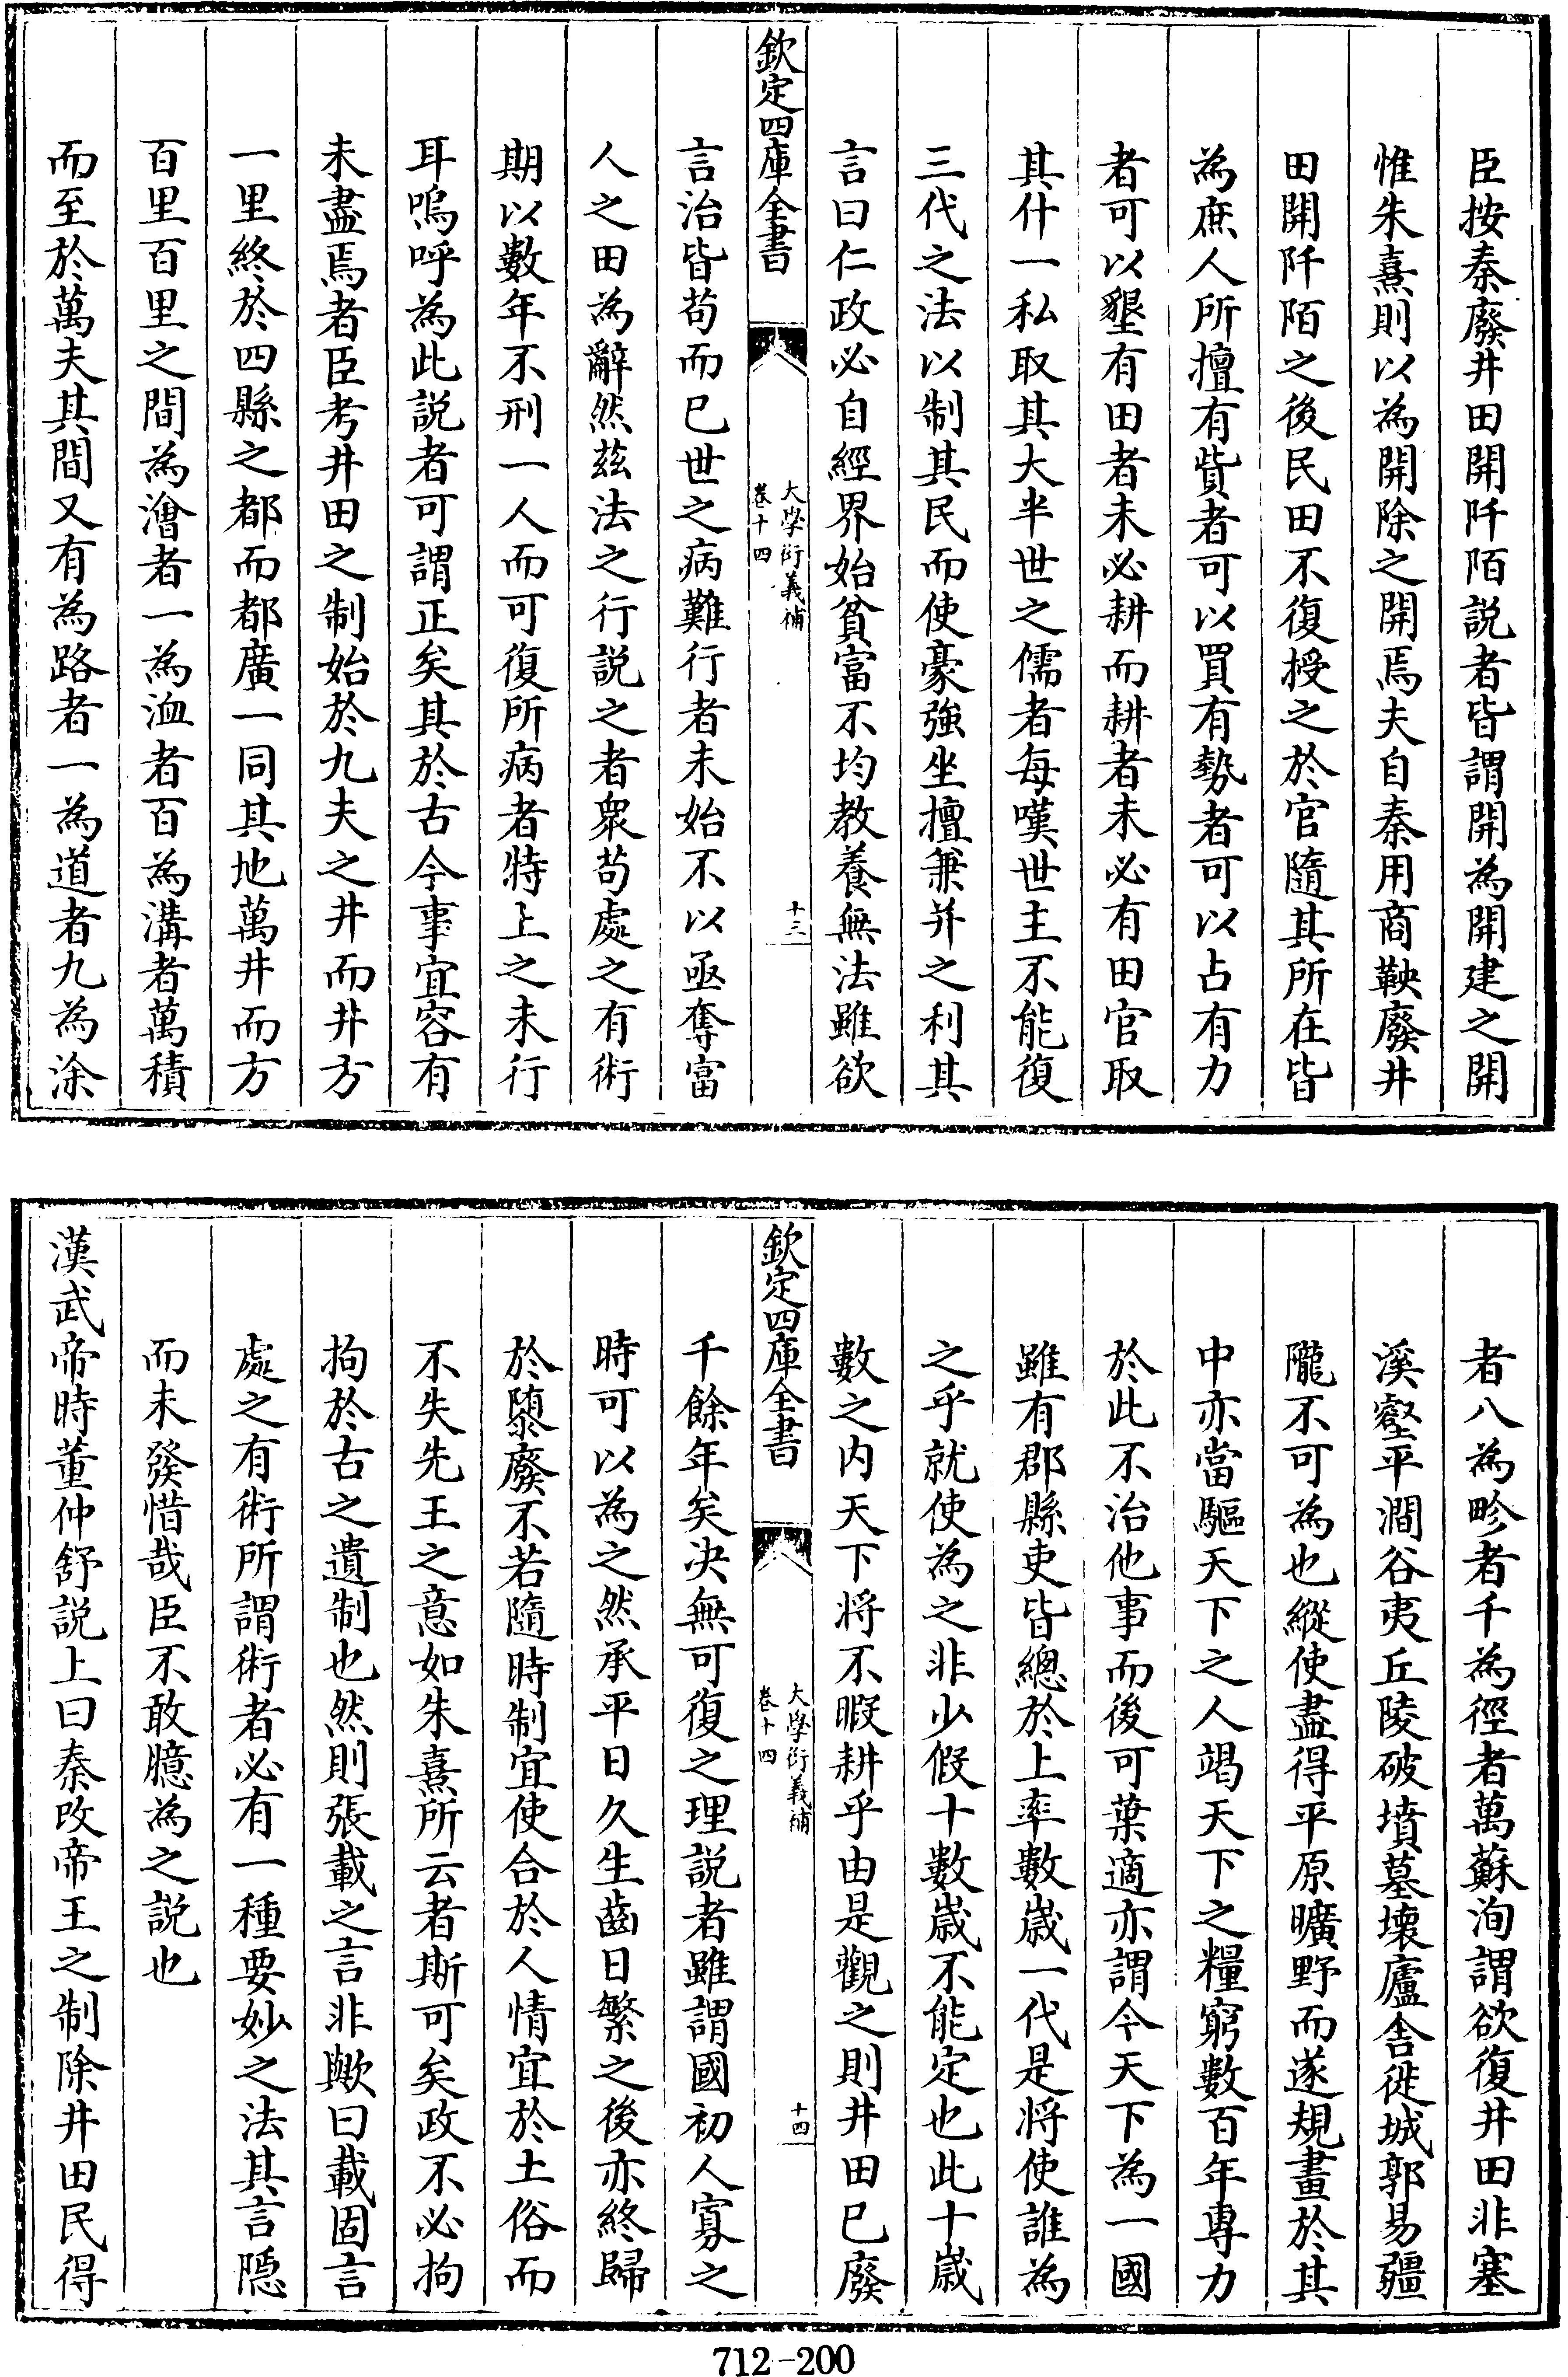 臣按秦廢井田開阡陌説者皆謂開為開建之開
惟朱熹則以為開除之開焉夫自秦用商鞅廢井
田開阡陌之後民田不復授之於官隨其所在皆
為庶人所擅有貲者可以買有勢者可以占有力
者可以墾有田者未必耕而耕者未必有田官取
其什一私取其大半世之儒者每嘆世主不能復
三代之法以制其民而使豪強坐擅兼并之利其
言曰仁政必自經界始貧富不均教養無法雖欲
欽定四庫全書
大學衍義補
卷十四
十三
言治皆苟而已世之病難行者未始不以亟奪富
人之田為辭然兹法之行説之者衆苟處之有術
期以數年不刑一人而可復所病者特上之未行
耳嗚呼為此説者可謂正矣其於古今事宜容有
未盡焉者臣考井田之制始於九夫之井而井方
一里終於四縣之都而都廣一同其地萬井而方
百里百里之間為澮者一為洫者百為溝者萬積
而至於萬夫其間又有為路者一為道者九為涂
者八為畛者千為徑者萬蘇洵謂欲復井田非塞
溪壑平澗谷夷丘陵破墳墓壞廬舍徙城郭易疆
隴不可為也縱使盡得平原曠野而遂規畫於其
中亦當驅天下之人竭天下之糧窮數百年專力
於此不治他事而後可葉適亦謂今天下為一國
雖有郡縣吏皆總於上率數歲一代是將使誰為
之乎就使為之非少假十數歲不能定也此十歲
數之内天下將不暇耕乎由是觀之則井田已廢
欽定四庫全書
大學衍義補
卷十四
十四
千餘年矣决無可復之理説者雖謂國初人寡之
時可以為之然承平日久生齒日繁之後亦終歸
於隳廢不若隨時制宜使合於人情宜於土俗而
不失先王之意如朱熹所云者斯可矣政不必拘
拘於古之遺制也然則張載之言非歟曰載固言
處之有術所謂術者必有一種要妙之法其言隱
而未發惜哉臣不敢臆為之説也
漢武帝時董仲舒説上曰秦改帝王之制除井田民得
712-200